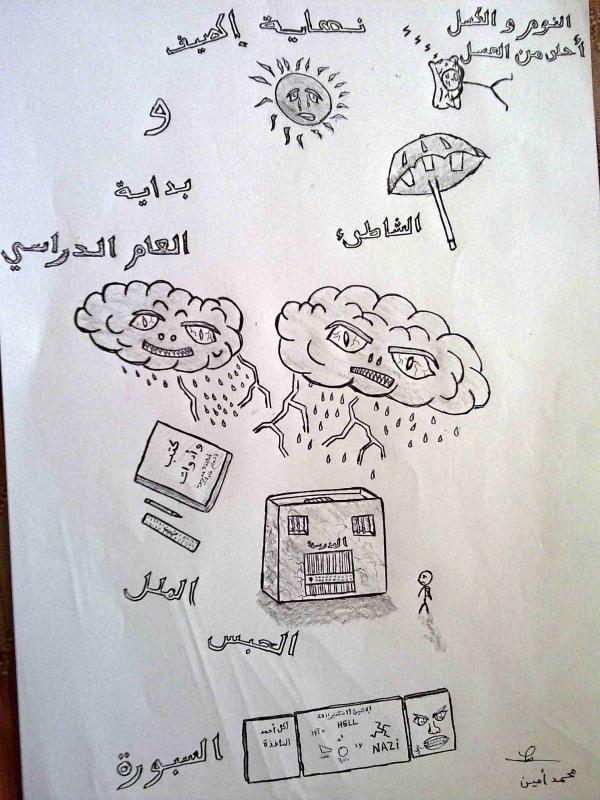 النوم و الكسل
أحلى من العسل
نهاية الصيف
و
بداية
العام الدراسي
الشاطئ
كتب
وأدوات
المدرسة
الملل
الحبس
HELL
NAZI
أكل أحمد
النافذة
السبورة
محمد أمين